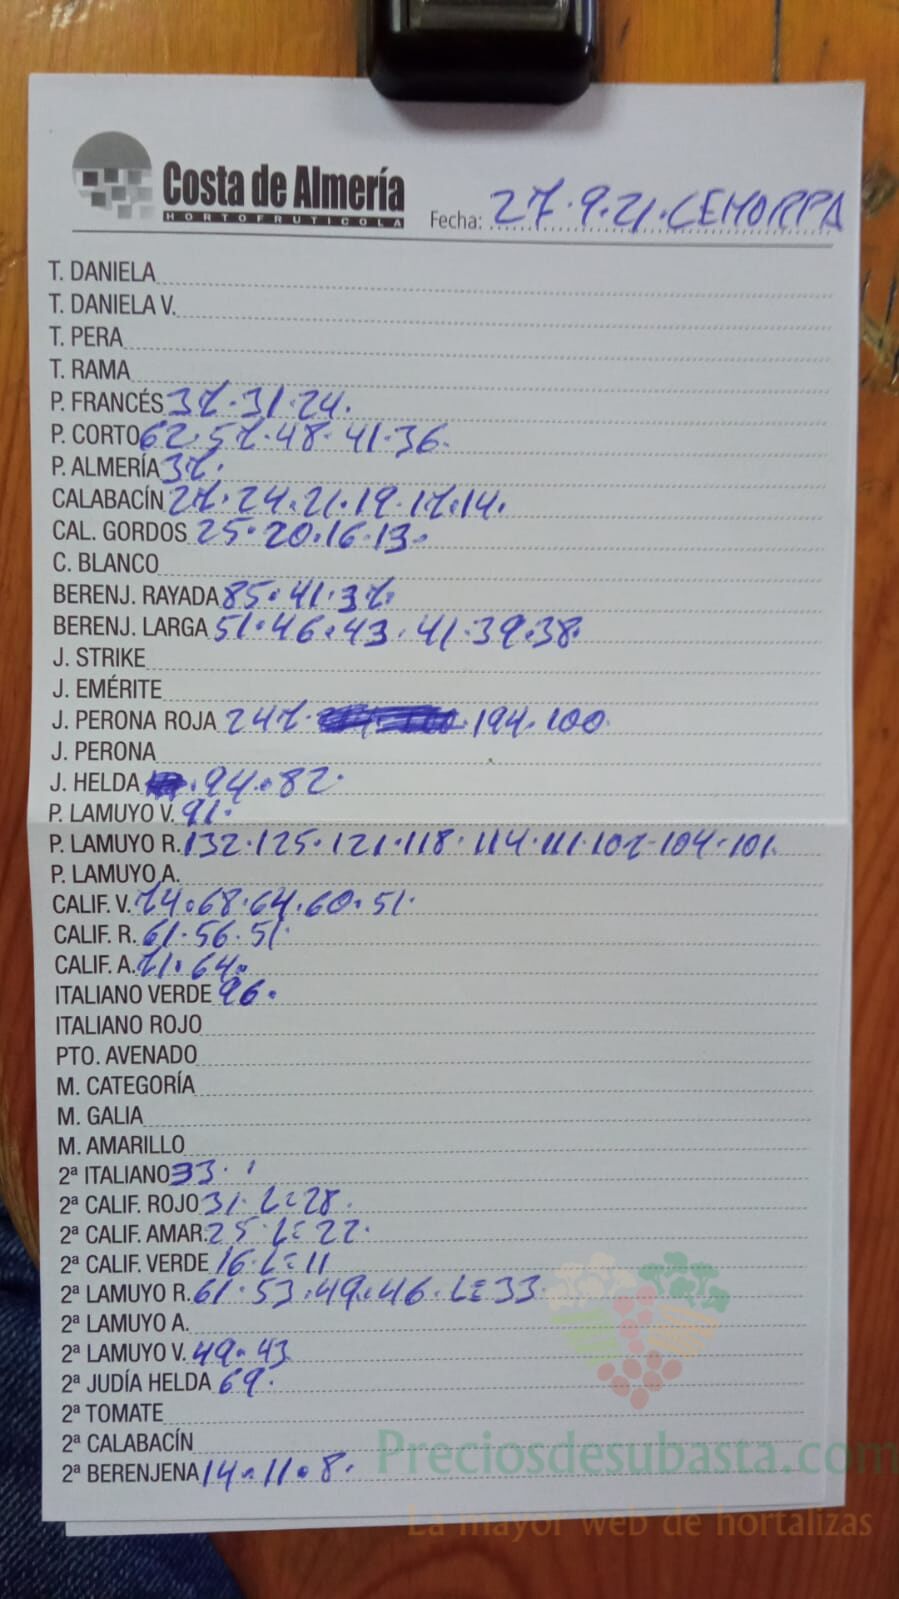 Costa de Almería
HORTOFRUTICOLA
Fecha: 27.9.21. CEHORPA
T. DANIELA
T. DANIELA V.
T. PERA
T. RAMA
P. FRANCÉS 37. 31. 24.
P. CORTO 62. 57. 48. 41. 36.
P. ALMERÍA 37.
CALABACÍN 27. 24. 21. 19. 17. 14.
CAL. GORDOS 25. 20. 16. 13.
C. BLANCO
BERENJ. RAYADA 85. 41. 37.
BERENJ. LARGA 51. 46. 43. 41. 39. 38.
J. STRIKE
J. EMÉRITE
J. PERONA ROJA 247. 194. 100.
J. PERONA
J. HELDA . 94. 82.
P. LAMUYO V. 91.
P. LAMUYO R. 132. 125. 121. 118. 114. 111. 107. 104. 101.
P. LAMUYO A.
CALIF. V. 74. 68. 64. 60. 51.
CALIF. R. 61. 56. 51.
CALIF. A. 71. 64.
ITALIANO VERDE 96.
ITALIANO ROJO
PTO. AVENADO
M. CATEGORÍA
M. GALIA
M. AMARILLO
2ª ITALIANO 33.
2ª CALIF. ROJO 31. L=28.
2ª CALIF. AMAR. 25 L=22.
2ª CALIF. VERDE 16. L=11
2ª LAMUYO R. 61. 53. 49. 46. L=33.
2ª LAMUYO A.
2ª LAMUYO V. 49. 43
2ª JUDÍA HELDA 69.
2ª TOMATE
2ª CALABACÍN
2ª BERENJENA 14. 11. 8.
Preciosdesubasta.com
La mayor web de hortalizas